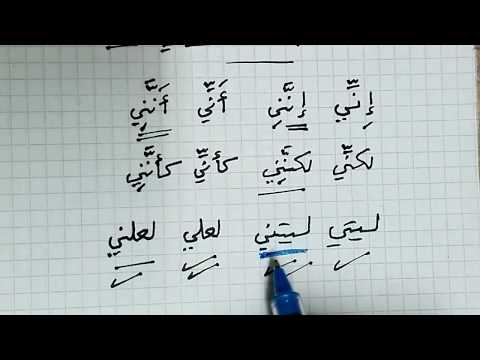 إِنِّي إِنَّنِي أَنِّي أَنَّنِي
لكنِّي لكنَّنِي كأنِّي كأنَّنِي
ليتي ليتني لعلي لعلني